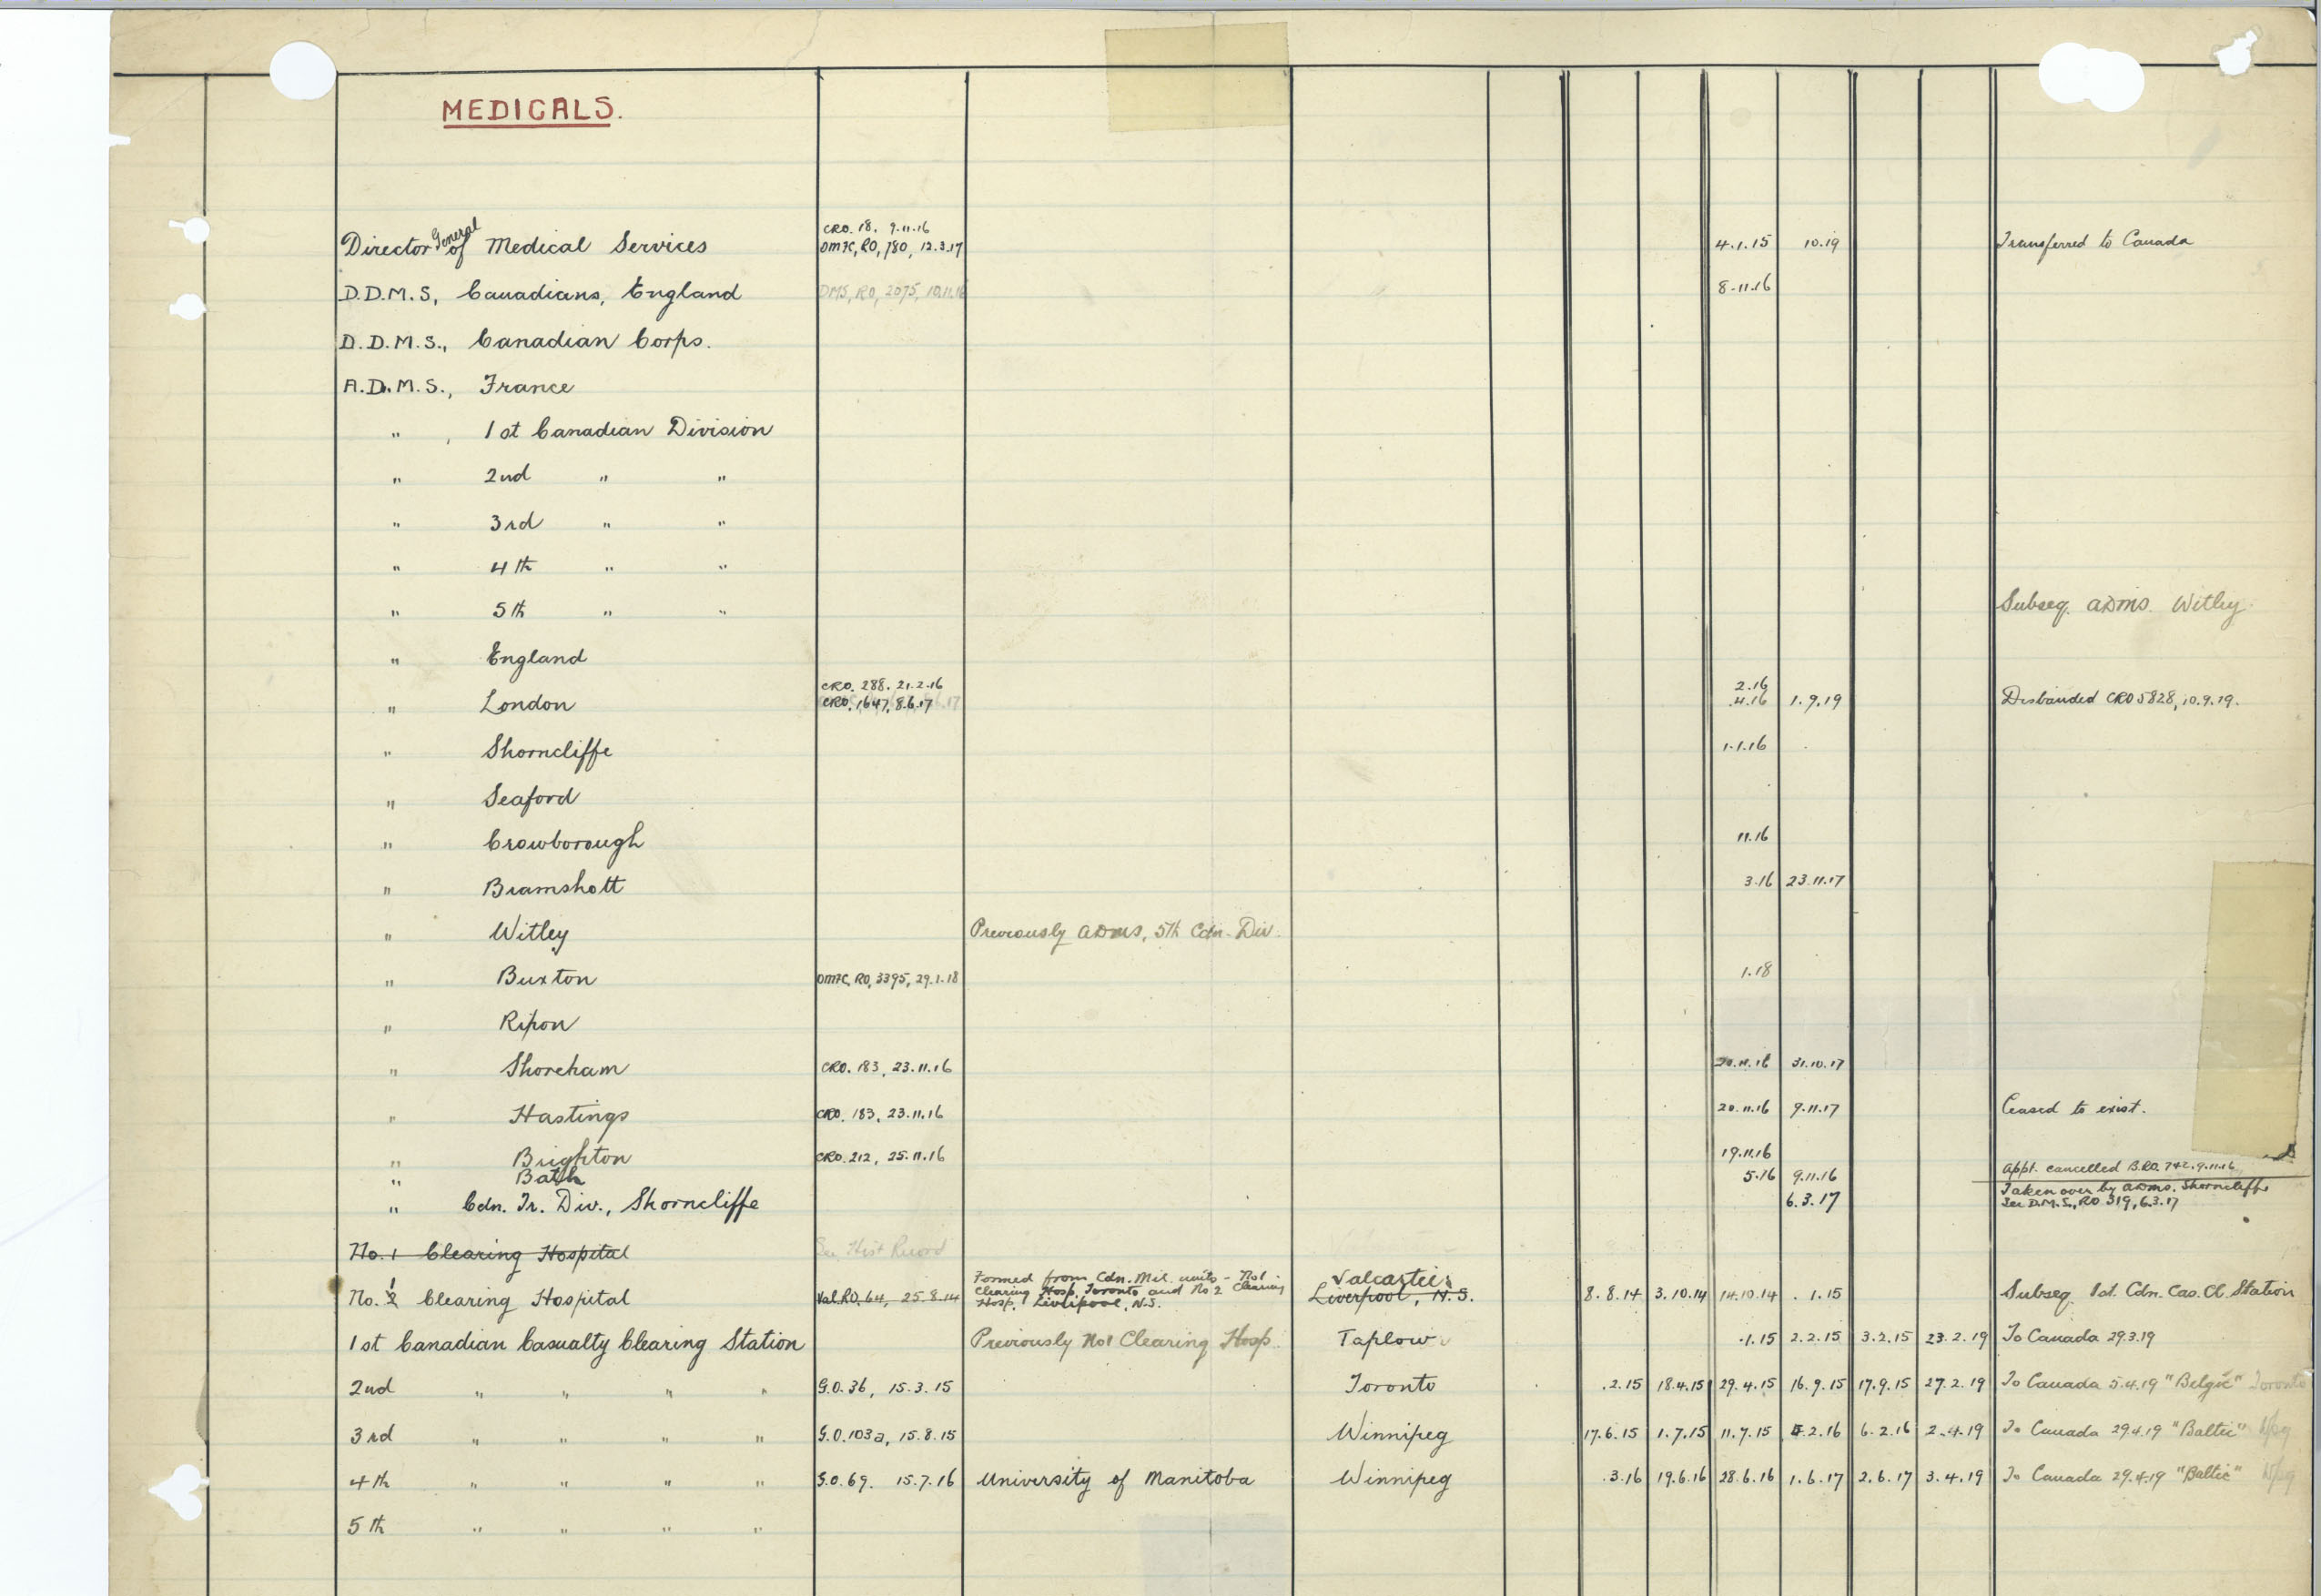 MEDICALS.
CRO. 18, 9.11.16
Director General of Medical Services OMFC, RO, 780, 12.3.17 4.1.15 10.19 Transferred to Canada
D.D.M.S, Canadians, England DMS, RO, 2075, 10.11.16 8.11.16
D.D.M.S., Canadian Corps.
A.D.M.S., France
" , 1st Canadian Division
" 2nd " "
" 3rd " "
" 4th " "
" 5th " " Subseq. ADMS. Witley
" England
CRO. 288. 21.2.16 2.16
" London CRO. 1647, 8.6.17 4.16 1.9.19 Disbanded CRO 5828, 10.9.19.
" Shorncliffe 1.1.16
" Seaford
" Crowborough 11.16
" Bramshott 3.16 23.11.17
" Witley Previously ADMS, 5th Cdn. Div.
" Buxton OMFC, RO, 3395, 29.1.18 1.18
" Ripon
" Shoreham CRO. 183, 23.11.16 20.11.16 31.10.17
" Hastings CRO. 183, 23.11.16 20.11.16 9.11.17 Ceased to exist.
" Brighton CRO. 212, 25.11.16 19.11.16
" Bath 5.16 9.11.16 Appt. cancelled B.RO. 742. 9.11.16
" Cdn. Tr. Div., Shorncliffe 6.3.17 Taken over by ADMS. Shorncliffe
See D.M.S., RO 319, 6.3.17
No. 1 Clearing Hospital See Hist Record
Formed from Cdn. Mil. units - No 1 Valcartier
Clearing Hosp. Toronto and No 2 Clearing
No. 1 2 Clearing Hospital Val.RO. 64, 25.8.14 Hosp. Liverpool, N.S. Liverpool, N.S. 8.8.14 3.10.14 14.10.14 .1.15 Subseq. 1st. Cdn. Cas. Cl. Station
1st Canadian Casualty Clearing Station Previously No 1 Clearing Hosp. Taplow .1.15 2.2.15 3.2.15 23.2.19 To Canada 29.3.19
2nd " " " " G.O. 36, 15.3.15 Toronto .2.15 18.4.15 29.4.15 16.9.15 17.9.15 27.2.19 To Canada 5.4.19 "Belgic" Toronto
3rd " " " " G.O. 103a, 15.8.15 Winnipeg 17.6.15 1.7.15 11.7.15 5.2.16 6.2.16 2.4.19 To Canada 29.4.19 "Baltic" W/peg
4th " " " " G.O. 69. 15.7.16 University of Manitoba Winnipeg .3.16 19.6.16 28.6.16 1.6.17 2.6.17 3.4.19 To Canada 29.4.19 "Baltic" W/peg
5th " " " "